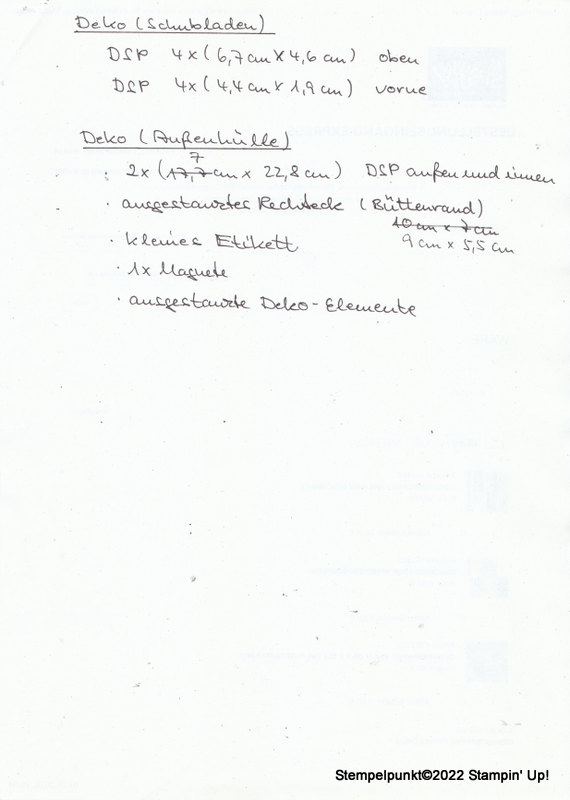 Deko (Schubladen)
DSP 4x (6,7 cm x 4,6 cm) oben
DSP 4x (4,4 cm x 1,9 cm) vorne
Deko (Außenhülle)
7
· 2x (17,7 cm x 22,8 cm) DSP außen und innen
· ausgestanztes Rechteck (Büttenrand)
10 cm x 7 cm
· kleines Etikett 9 cm x 5,5 cm
· 1x Magnete
· ausgestanzte Deko-Elemente
Stempelpunkt©2022 Stampin' Up!